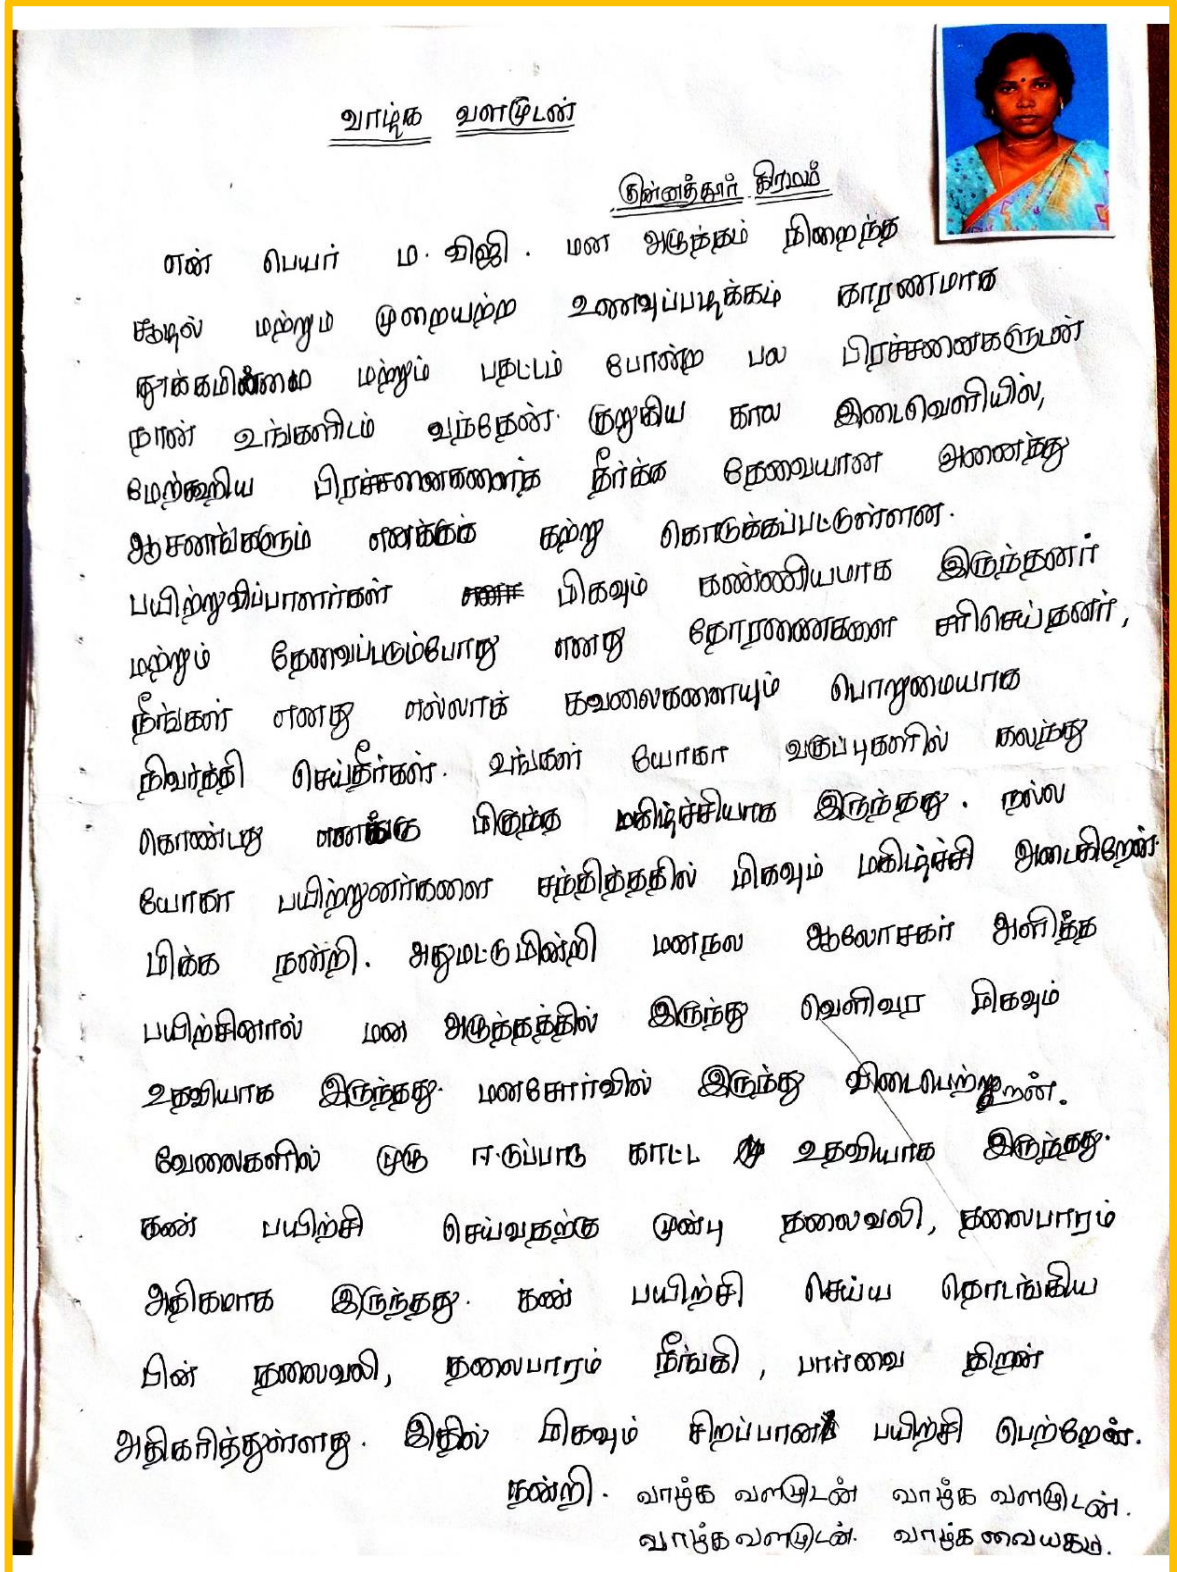 வாழ்க வளமுடன்
குன்னத்தூர் கிராமம்
என் பெயர் ம. விஜி. மன அழுத்தம் நிறைந்த
சூழல் மற்றும் முறையற்ற உணவுப்பழக்கம் காரணமாக
தூக்கமின்மை மற்றும் பதட்டம் போன்ற பல பிரச்சனைகளுடன்
நான் உங்களிடம் வந்தேன். குறுகிய கால இடைவெளியில்,
மேற்கூறிய பிரச்சனைகளைத் தீர்க்க தேவையான அனைத்து
ஆசனங்களும் எனக்குக் கற்று கொடுக்கப்பட்டுள்ளன.
பயிற்றுவிப்பாளர்கள் மிகவும் கண்ணியமாக இருந்தனர்
மற்றும் தேவைப்படும்போது எனது தோரணைகளை சரிசெய்தனர்,
நீங்கள் எனது எல்லாக் கவலைகளையும் பொறுமையாக
நிவர்த்தி செய்தீர்கள். உங்கள் யோகா வகுப்புகளில் கலந்து
கொண்டது எனக்கு மிகுந்த மகிழ்ச்சியாக இருந்தது. நல்ல
யோகா பயிற்றுனர்களை சந்தித்ததில் மிகவும் மகிழ்ச்சி அடைகிறேன்.
மிக்க நன்றி. அதுமட்டுமின்றி மனநல ஆலோசகர் அளித்த
பயிற்சினால் மன அழுத்தத்தில் இருந்து வெளிவர மிகவும்
உதவியாக இருந்தது. மனசோர்வில் இருந்து விடைபெற்றுறேன்.
வேலைகளில் முழு ஈடுப்பாடு காட்ட உதவியாக இருந்தது.
கண் பயிற்சி செய்வதற்கு முன்பு தலைவலி, தலைபாரம்
அதிகமாக இருந்தது. கண் பயிற்சி செய்ய தொடங்கிய
பின் தலைவலி, தலைபாரம் நீங்கி, பார்வை திறன்
அதிகரித்துள்ளது. இதில் மிகவும் சிறப்பான பயிற்சி பெற்றேன்.
நன்றி. வாழ்க வளமுடன் வாழ்க வளமுடன்.
வாழ்க வளமுடன். வாழ்க வையகம்.